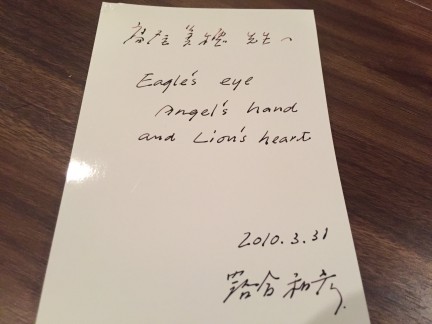 先生へ
Eagle's eye
Angel's hand
and Lion's heart
2010.3.31